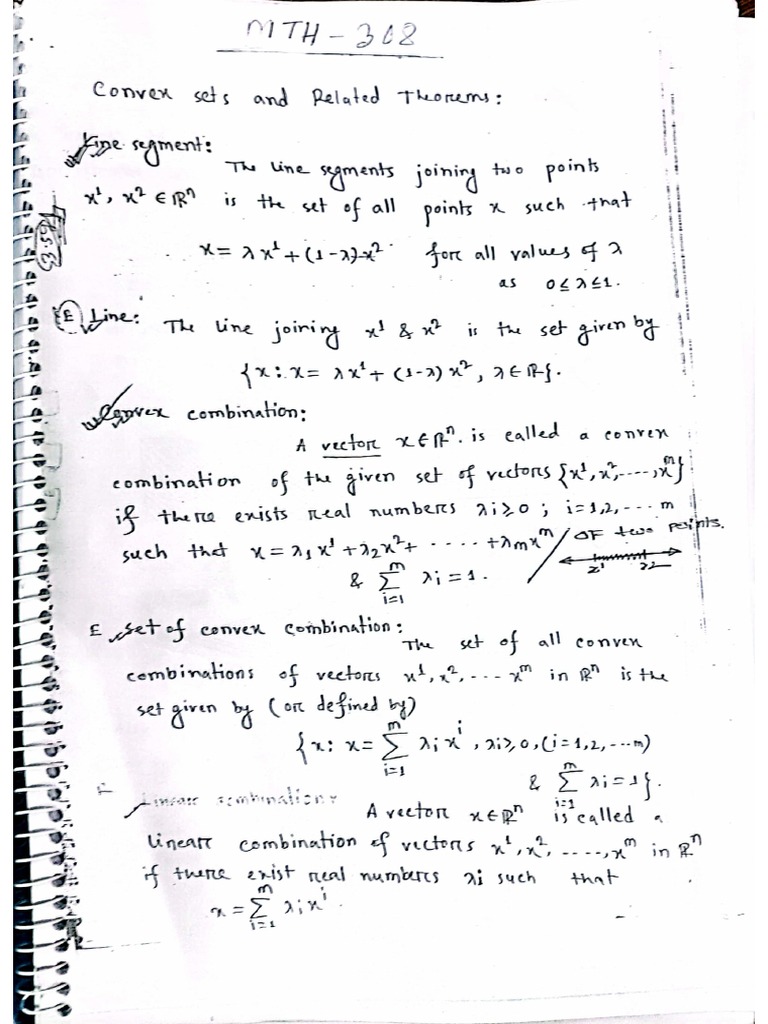 MTH - 308
Convex sets and Related Theorems:
Line segment:
The line segments joining two points
x¹, x² ∈ ℝⁿ is the set of all points x such that
x = λx¹ + (1-λ)x² forc all values of λ
as 0 ≤ λ ≤ 1.
E Line: The line joining x¹ & x² is the set given by
{x : x = λx¹ + (1-λ)x², λ ∈ ℝ}.
Convex combination:
A vectorc x ∈ ℝⁿ. is called a convex
combination of the given set of vectors {x¹, x², ----, xᵐ}
if therce exists real numbercs λi ≥ 0 ; i = 1,2, --- m
such that x = λ₁x¹ + λ₂x² + ..... + λₘxᵐ / OF two points.
& ∑ᵢ₌₁ᵐ λi = 1. x¹ x²
E set of convex combination:
The set of all convex
combinations of vectorcs x¹, x², --- xᵐ in ℝⁿ is the
set given by (orc defined by)
{x : x = ∑ᵢ₌₁ᵐ λi xⁱ, λi ≥ 0, (i = 1,2, --- m)
& ∑ᵢ₌₁ᵐ λi = 1}.
Linearc combination:
A vectorc x ∈ ℝⁿ is called a
linearc combination of vectorcs x¹, x², ----, xᵐ in ℝⁿ
if therce exist real numbercs λi such that
x = ∑ᵢ₌₁ᵐ λi xⁱ.